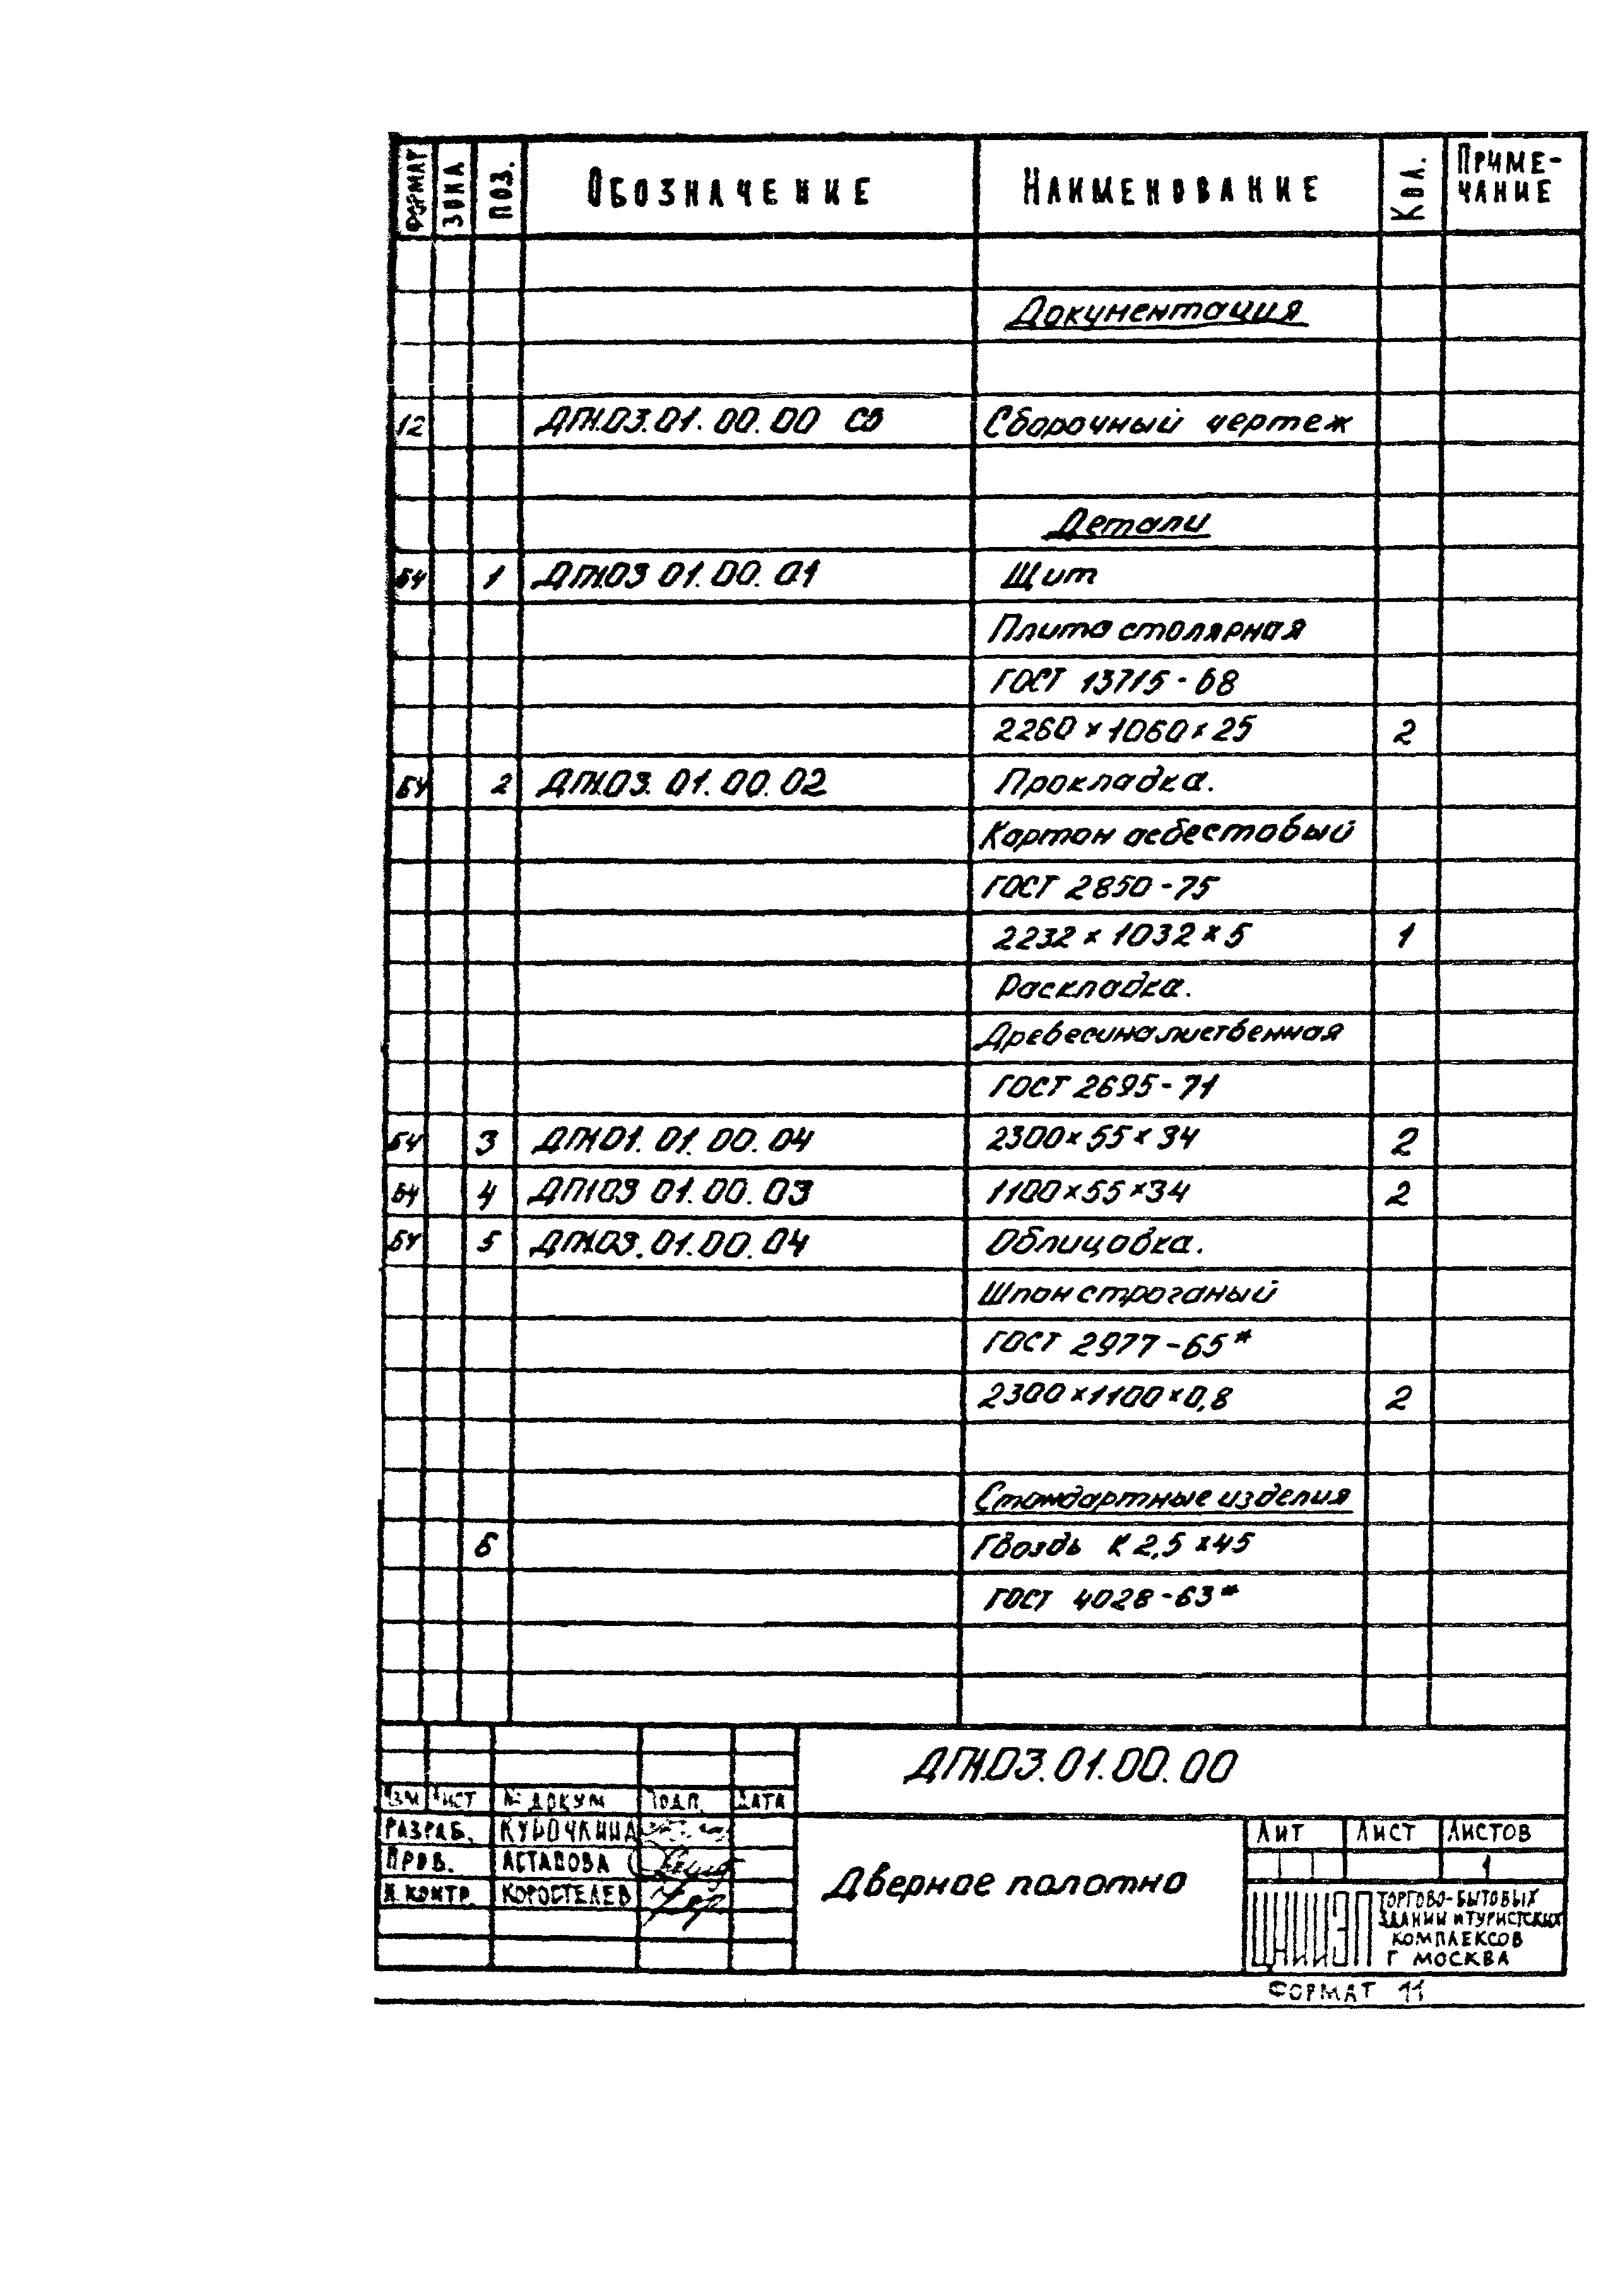 ФОРМАТ ЗОНА ПОЗ. ОБОЗНАЧЕНИЕ НАИМЕНОВАНИЕ КОЛ. ПРИМЕ-
ЧАНИЕ
Документация
12 ДПН.03.01.00.00 СБ Сборочный чертеж
Детали
БЧ 1 ДПН.03 01.00.01 Щит
Плита столярная
ГОСТ 13715-68
2260×1060×25 2
БЧ 2 ДПН.03.01.00.02 Прокладка.
Картон асбестовый
ГОСТ 2850-75
2232×1032×5 1
Раскладка.
Древесина лиственная
ГОСТ 2695-71
БЧ 3 ДПН01.01.00.04 2300×55×34 2
БЧ 4 ДПН03 01.00.03 1100×55×34 2
БЧ 5 ДПН.03.01.00.04 Облицовка.
Шпон строганый
ГОСТ 2977-65*
2300×1100×0,8 2
Стандартные изделия
6 Гвоздь К 2,5×45
ГОСТ 4028-63*
ДПН.03.01.00.00
ИЗМ ЛИСТ № ДОКУМ ПОДП. ДАТА
РАЗРАБ. КУРОЧКИНА
ПРОВ. АСТАПОВА
Н. КОНТР. КОРОСТЕЛЕВ
Дверное полотно
ЛИТ ЛИСТ ЛИСТОВ
1
ЦНИИЭП ТОРГОВО-БЫТОВЫХ
ЗДАНИЙ И ТУРИСТСКИХ
КОМПЛЕКСОВ
Г МОСКВА
ФОРМАТ 11